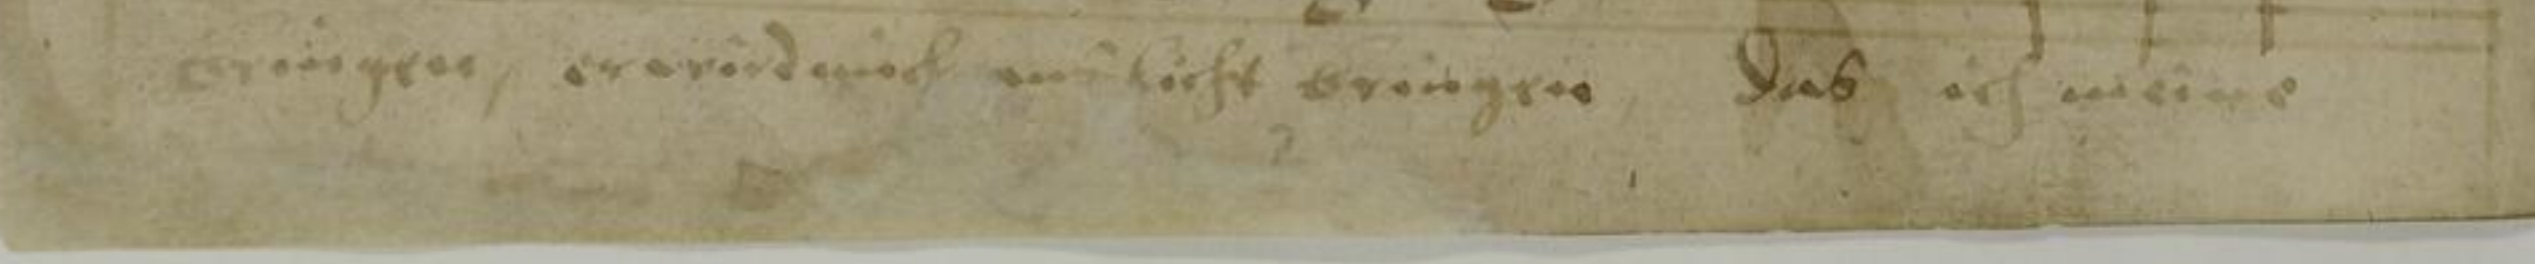 bringen, er wird mich ans licht bringen, das ich meine